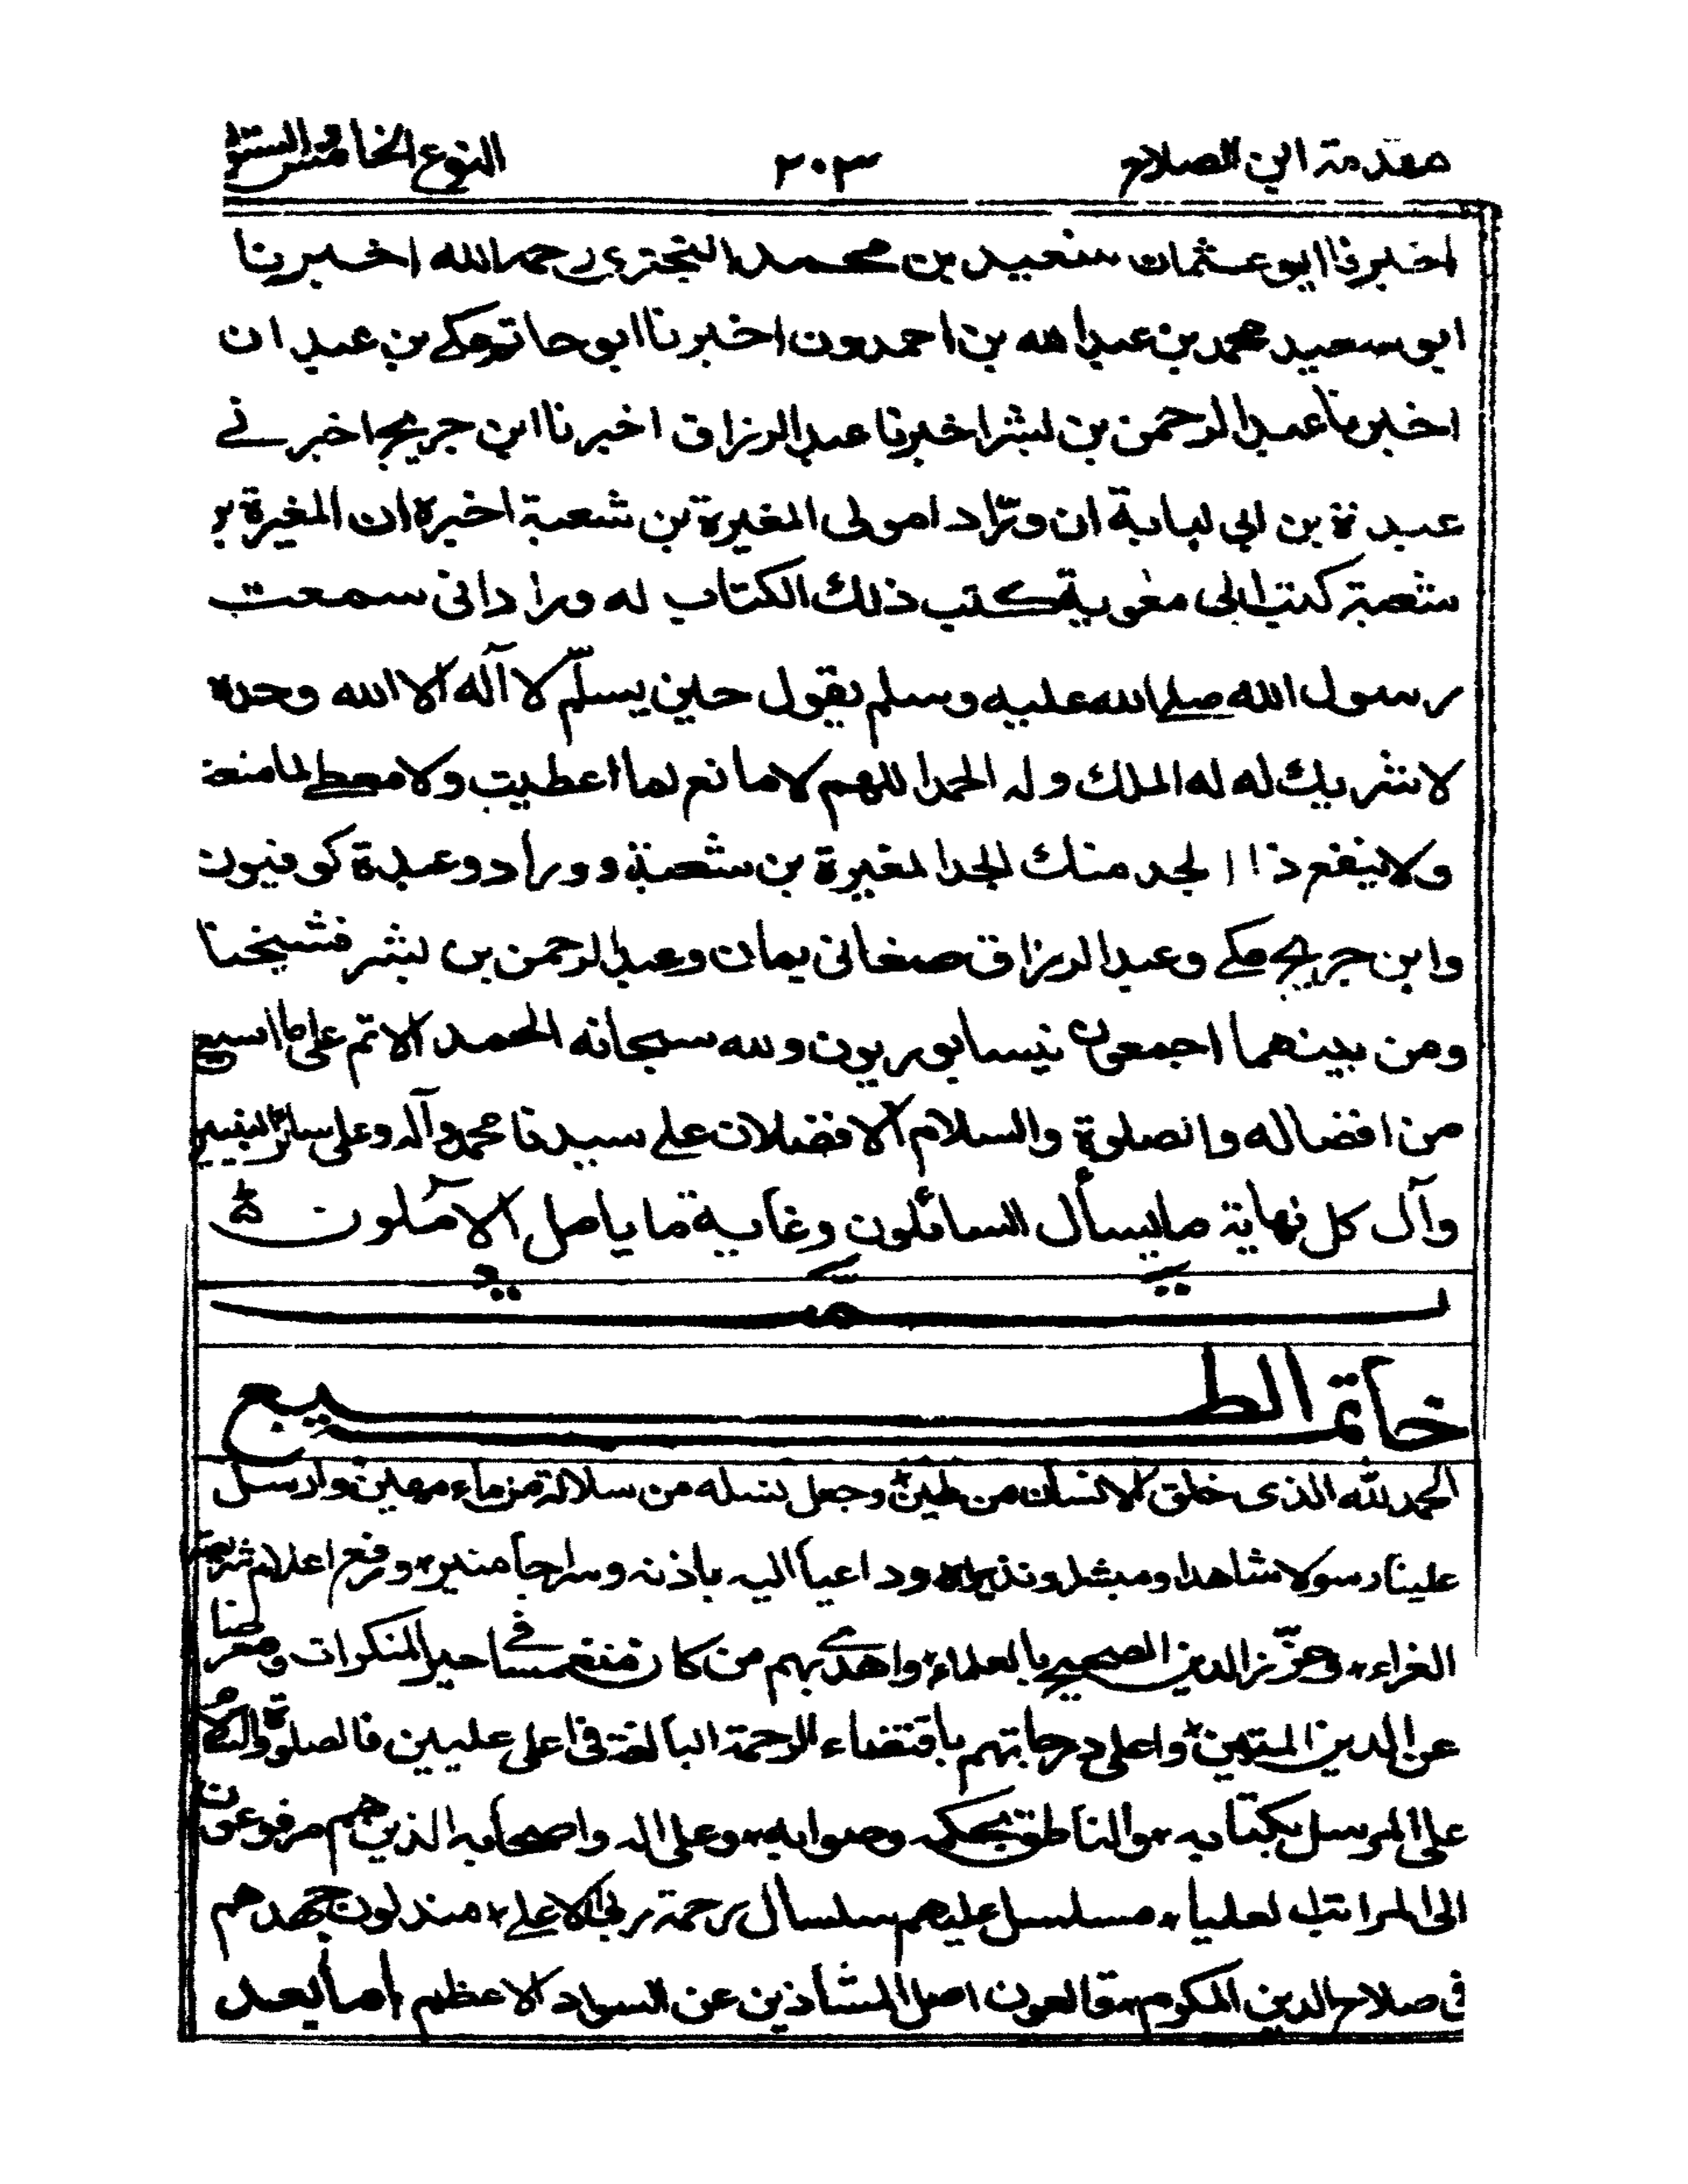 مقدمة ابن الصلاح ٣٠٣ النوع الخامس والستون
اخبرنا ابو عثمان سعيد بن محمد البحيري رحمه الله اخبرنا
ابو سعيد محمد بن عبد الله بن حمدون اخبرنا ابو حاتم مكي بن عبدان
اخبرنا عبد الرحمن بن بشر اخبرنا عبد الرزاق اخبرنا ابن جريج اخبرني
عبدة بن ابي لبابة ان ورّادا مولى المغيرة بن شعبة اخبره ان المغيرة بن
شعبة كتب الى معٰوية كتب ذلك الكتاب له وراد انى سمعت
رسول الله صلى الله عليه وسلم يقول حين يسلّم لا آله الا الله وحده
لا شريك له له الملك وله الحمد اللهم لا مانع لما اعطيت ولا معطى لما منعت
ولا ينفع ذا الجد منك الجد المغيرة بن شعبة ووراد وعبدة كوفيون
وابن جريج مكي وعبد الرزاق صنعانى يمان وعبد الرحمن بن بشر فشيخنا
ومن بينهما اجمعون نيسابوريون ولله سبحانه الحمد الاتم على ما اسبغ
من افضاله والصلوة والسلام الافضلان على سيدنا محمد وآله وعلى سائر النبيين
وآل كل نهاية ما يسأل السائلون وغاية ما يامل الآملون
تمت
خاتمة الطبع
الحمد لله الذى خلق الانسان من طين وجعل نسله من سلالة من ماء مهين وارسل
علينا رسولا شاهدا ومبشرا ونذيرا وداعيا اليه باذنه وسراجا منيرا ورفع اعلام شريعته
الغراء وعزّز الدين الصحيح بالعلماء واهدى بهم من كان منغمسا في المنكرات ومعرضا
عن الدين المتين واعلى درجاتهم باقتضاء الرحمة البالغة فى اعلى عليين فالصلوة والسلام
على المرسل بكتابه والناطق بحكمه وصوابه وعلى اله واصحابه الذين هم مرفوعون
الى المراتب العليا مسلسل عليهم سلسال رحمة ربى الاعلى مبذلون جهدهم
فى صلاح الدين المكرم قالعون اصل الشاذين عن السواد الاعظم اما بعد